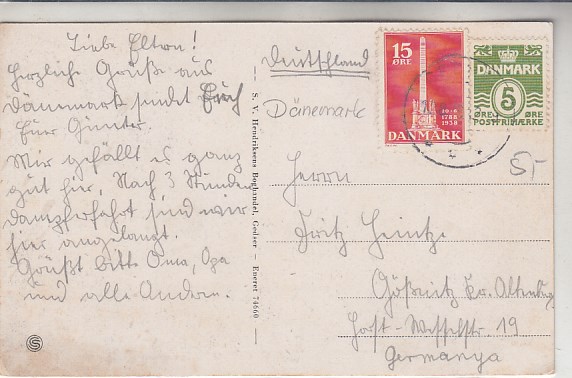 Liebe Eltern!
Herzliche Grüße aus
Dänemark sendet Euch
Euer Günter.
Mir gefällt es ganz
gut hier. Nach 3 Stunden
Dampferfahrt sind wir
hier angelangt.
Grüßt bitte Oma, Opa
und alle Andern.
S. V. Hendriksens Boghandel, Gedser — Eneret 74660
Deutschland
Dänemark
15
ØRE
20·6
1788
1938
DANMARK
DANMARK
5
ØRE ØRE
POSTFRIMÆRKE
5,-
Herrn
Fritz Heintze
Gößnitz Kr. Altenburg
Horst-Wesselstr. 19
Germanya
S